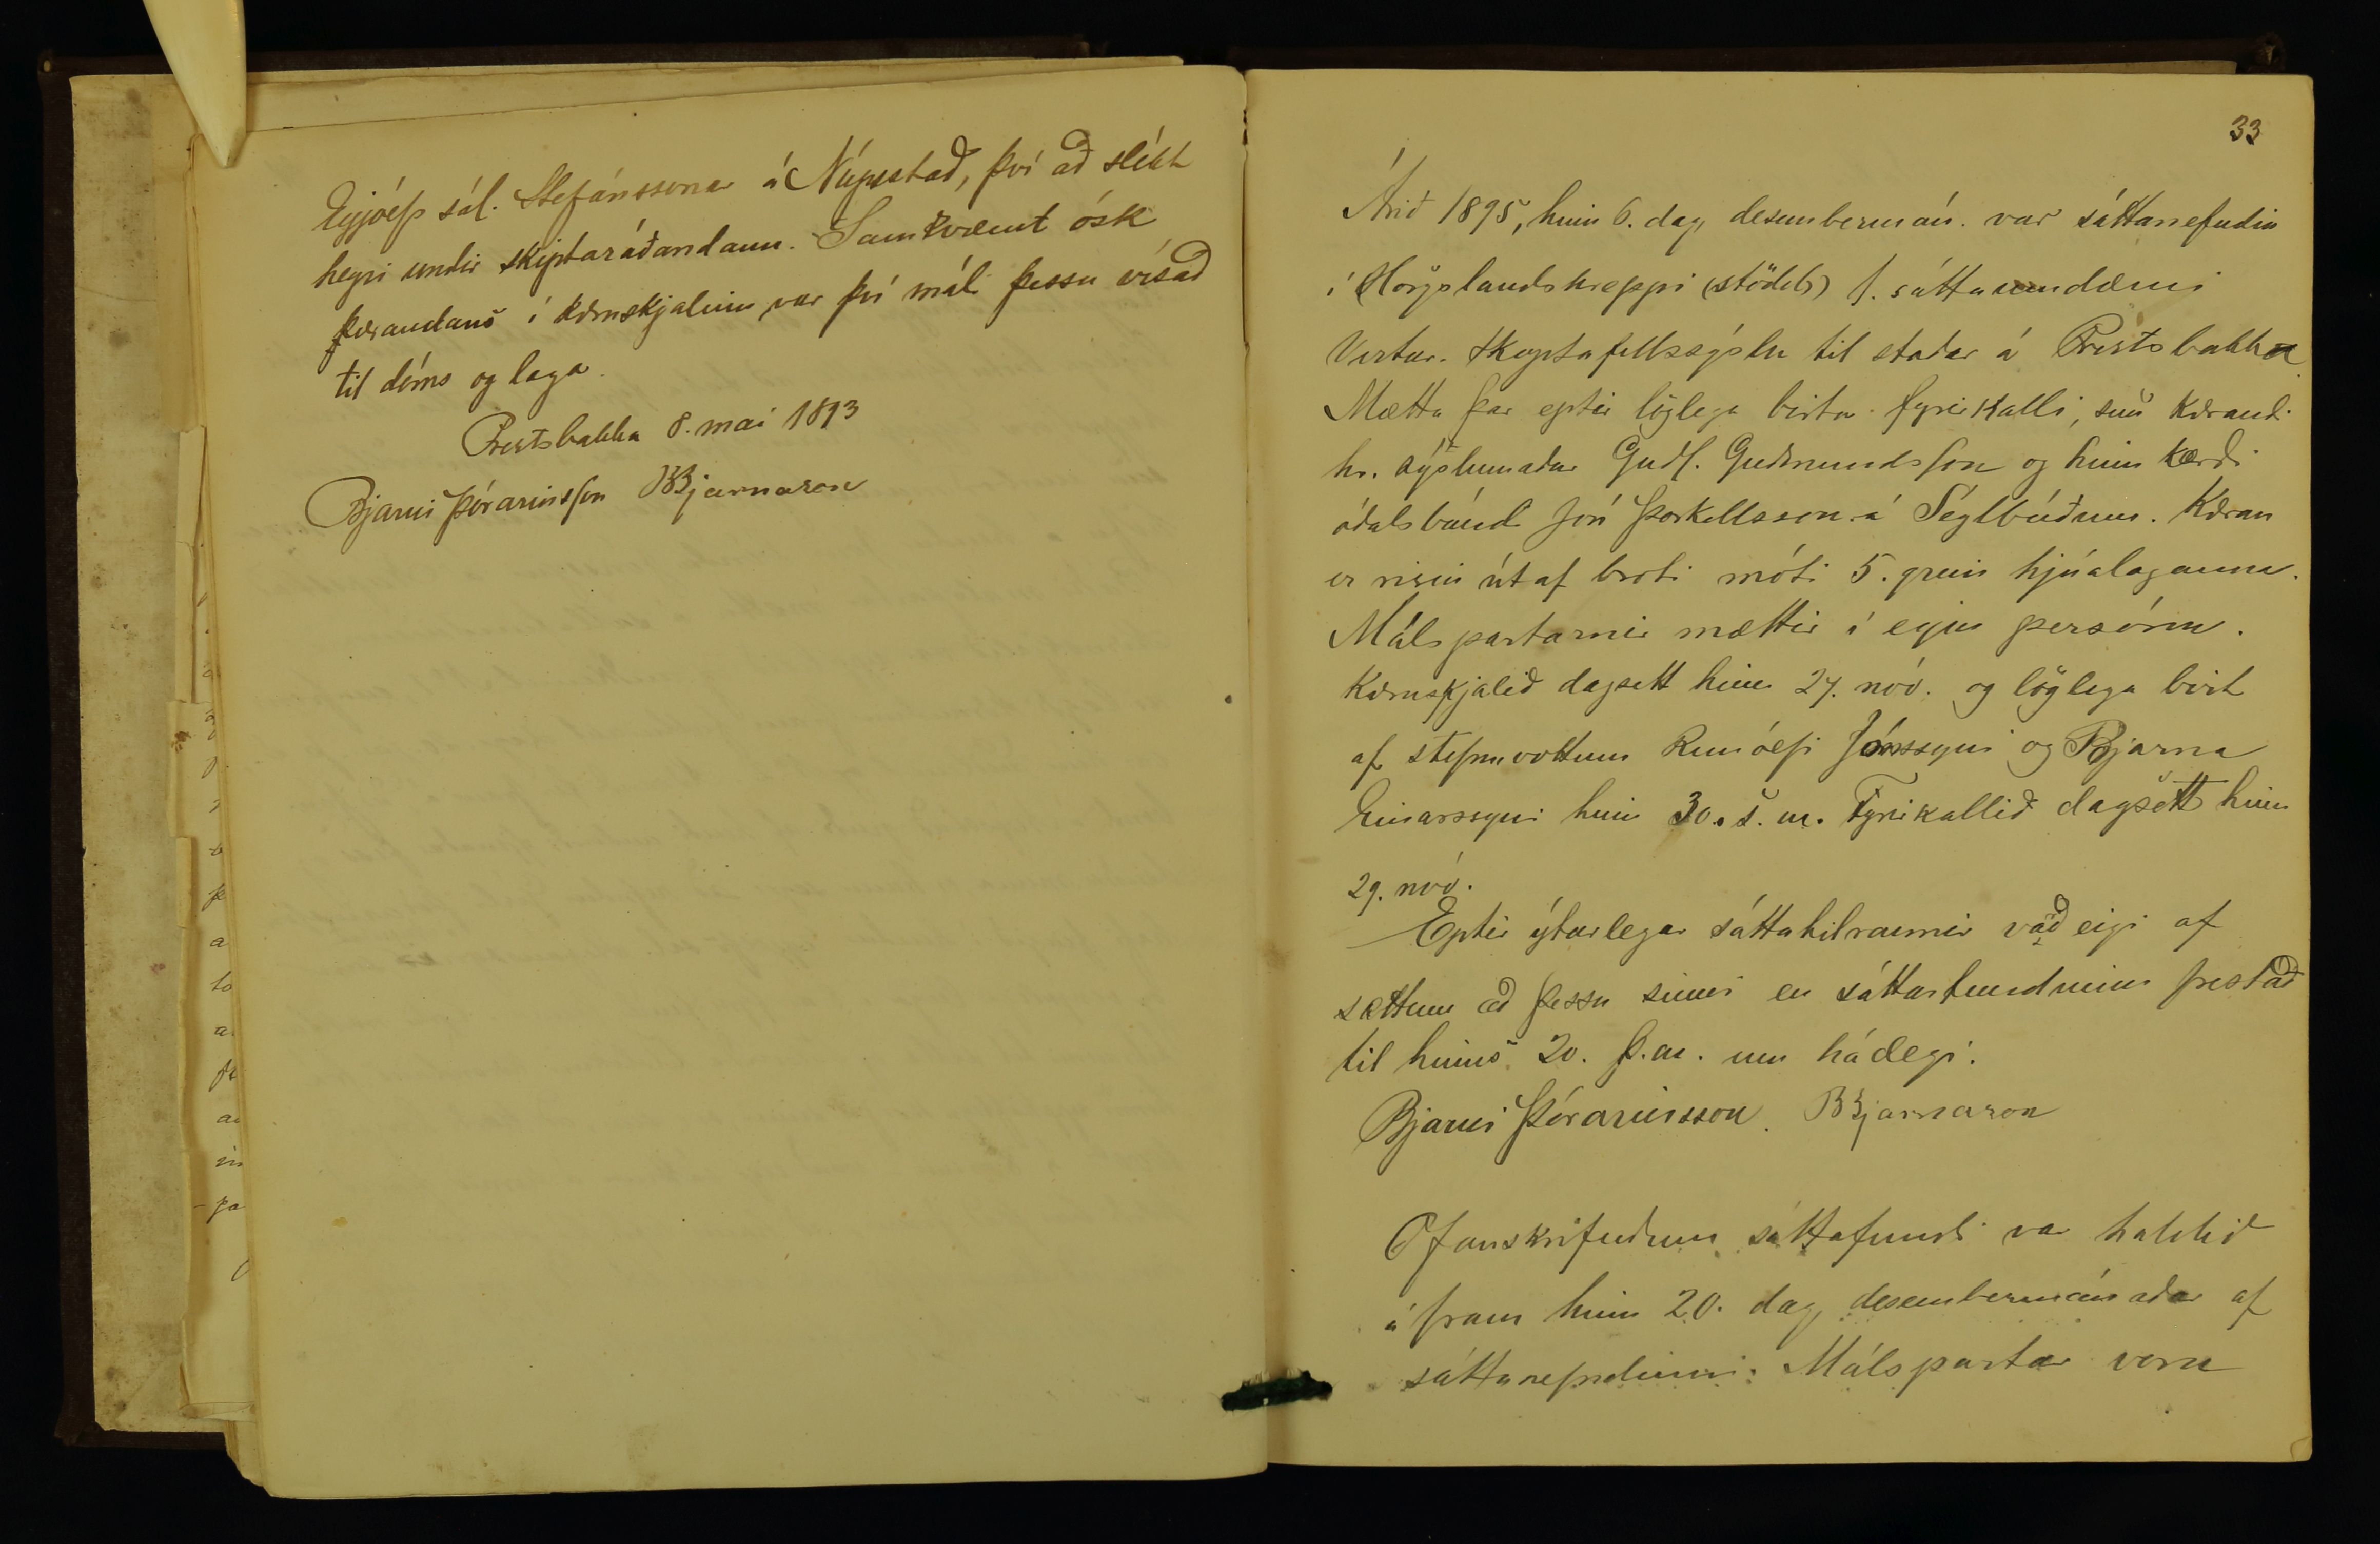 Eyjólfs sál. Stefánssonar á Núpstað, því að slíkt
heyri undir skiptaráðandann. Samkvæmt ósk
kærandans í kæruskjalinu var því máli þessu vísað
til dóms og laga.
Prestsbakka 8. maí 1893
Bjarni Þórarinsson BBjarnason
33
Árið 1895, hinn 6. dag desembermán. var sáttanefndin
í Hörgslandshreppi (stödd) í sáttaumdæmi
Vestur-Skaptafellssýslu til staðar á Prestsbakka
Mætta þar eptir löglega birtu fyrirkalli, sem kærandi
hr. sýslumaður Guðl. Guðmundsson og hinn kærði
óðalsbóndi Jón Þorkellsson á Seglbúðum. Kæran
er risin út af broti móti 5. grein hjúalaganna.
Málspartarnir mættir í eigin persónu.
Kæruskjalið dagsett hinn 27. nóv. og löglega birt
af stefnuvottum Runólfi Jónssyni og Bjarna
Einarssyni hinn 30. s. m. Fyrirkallið dagsett hinn
29. nóv.
Eptir ýtarlegar sáttatilraunir varð eigi af
sættum að þessu sinni en sáttarfundurinn frestað
til hins 20. þ.m. um hádegi.
Bjarni Þórarinsson. BBjarnason
Ofanskrifuðum sáttafundi var haldið
áfram hinn 20. dag desembermánaðar af
sáttanefndinni. Málspartar voru